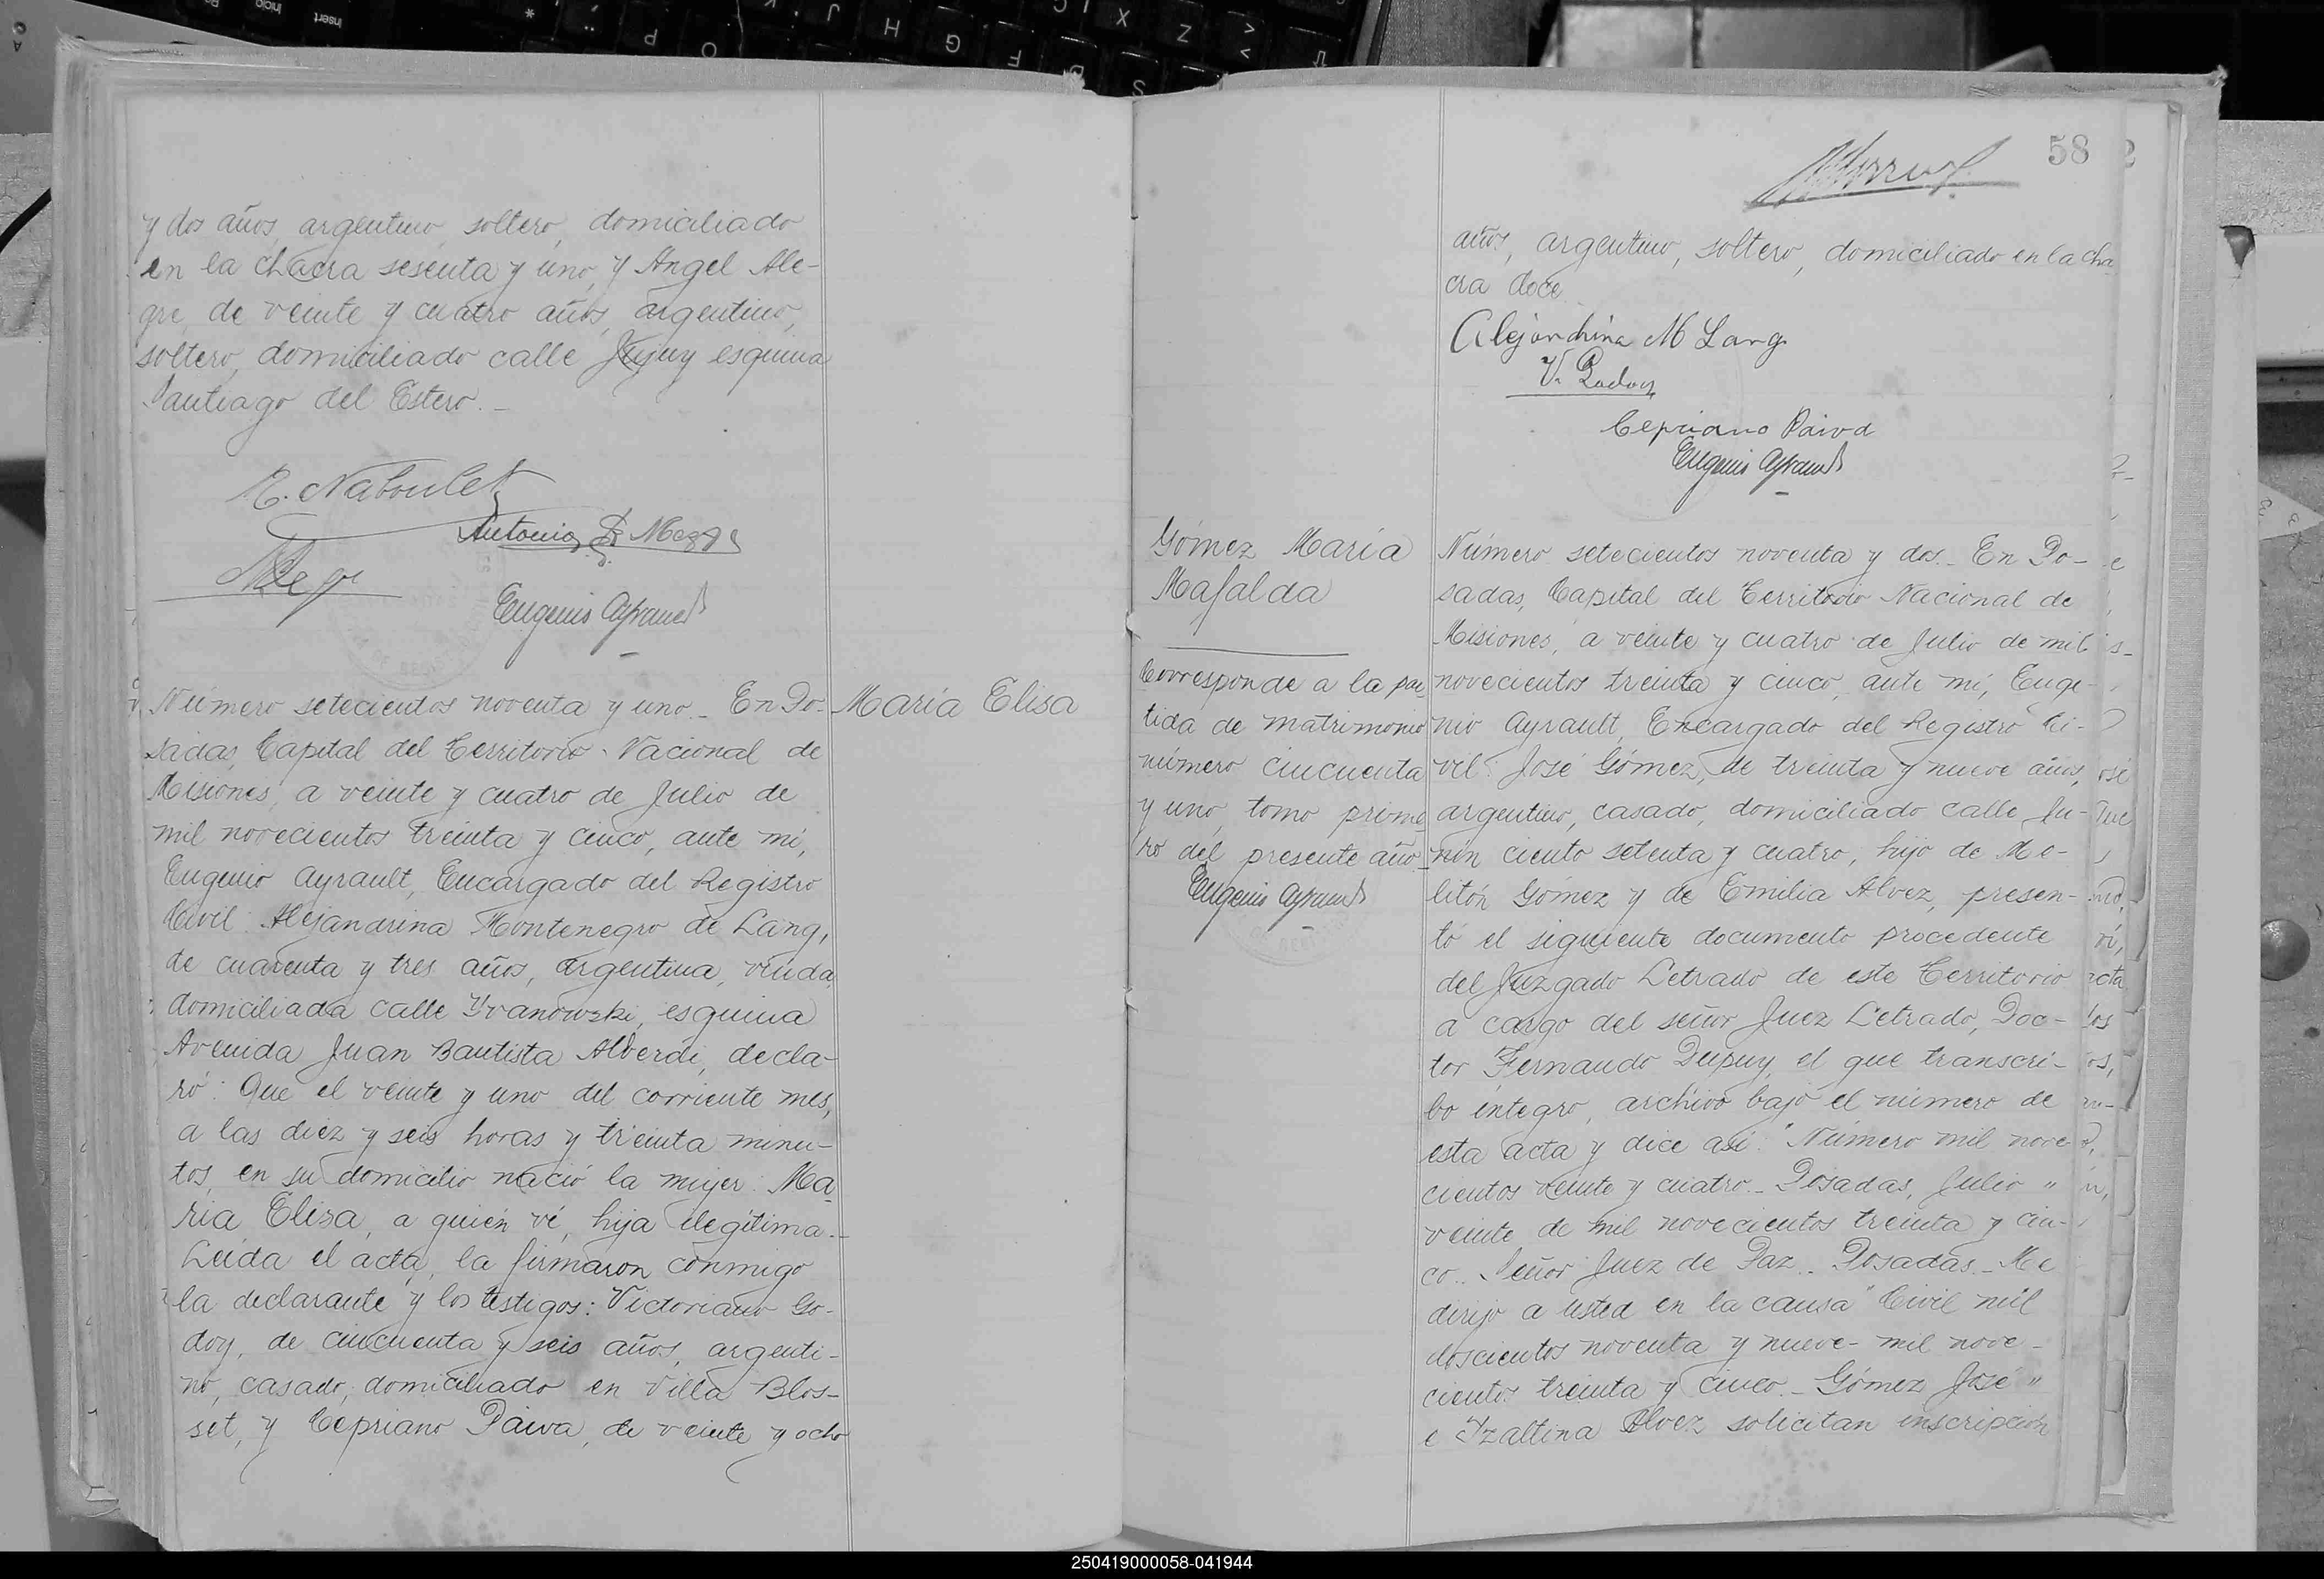 y dos años, argentino, soltero, domiciliado
en la chacra sesenta y uno, y Angel Ale-
gre, de veinte y cuatro años, argentino,
soltero, domiciliado calle Jujuy esquina
Santiago del Estero.-
R. Naboulet
Antonio
Eugenio Ayrault
Número setecientos noventa y uno - En Po-
sadas, Capital del Territorio Nacional de
Misiones, a veinte y cuatro de Julio de
mil novecientos treinta y cinco, ante mí,
Eugenio Ayrault, Encargado del Registro
Civil: Alejandrina Montenegro de Lang,
de cuarenta y tres años, argentina, viuda,
domiciliada calle Yvanowski, esquina
Avenida Juan Bautista Alberdi, decla-
ró: Que el veinte y uno del corriente mes,
a las diez y seis horas y treinta minu-
tos, en su domicilio nació la mujer: Ma
ría Elisa, a quién ví, hija ilegítima.-
Leida el acta, la firmaron conmigo
la declarante y los testigos: Victoriano Go-
doy, de cincuenta y seis años, argenti-
no, casado, domiciliado en Villa Blos-
set, y Cepriano Paiva, de veinte y ocho
María Elisa
58
años, argentino, soltero, domiciliado en la cha
cra doce
Alejandrina M Lang
Cepriano Paiva
Eugenio Ayrault
Gómez María
Mafalda
Corresponde a la par
tida de matrimonio
número cincuenta
y uno, tomo prime
ro del presente año
Eugenio Ayrault
Número setecientos noventa y dos.- En Po-
sadas, Capital del Territorio Nacional de
Misiones, a veinte y cuatro de Julio de mil
novecientos treinta y cinco, ante mí, Euge-
nio Ayrault, Encargado del Registro Ci-
vil: José Gómez, de treinta y nueve años,
argentino, casado, domiciliado calle Ju-
nín ciento setenta y cuatro, hijo de Me-
litón Gómez y de Emilia Alvez, presen-
tó el siguiente documento procedente
del Juzgado Letrado de este Territorio
a cargo del señor Juez Letrado, Doc-
tor Fernando Dupuy, el que transcri-
bo íntegro, archivo bajo el número de
esta acta y dice así: "Número mil nove-
cientos veinte y cuatro.- Posadas, Julio "
veinte de mil novecientos treinta y cin-
co.- Señor Juez de Paz.- Posadas.- Me
dirijo a usted en la causa "Civil mil
doscientos noventa y nueve - mil nove-
cientos treinta y cinco.- Gómez José "
e Yzaltina Alvez solicitan inscripción
250419000058-041944